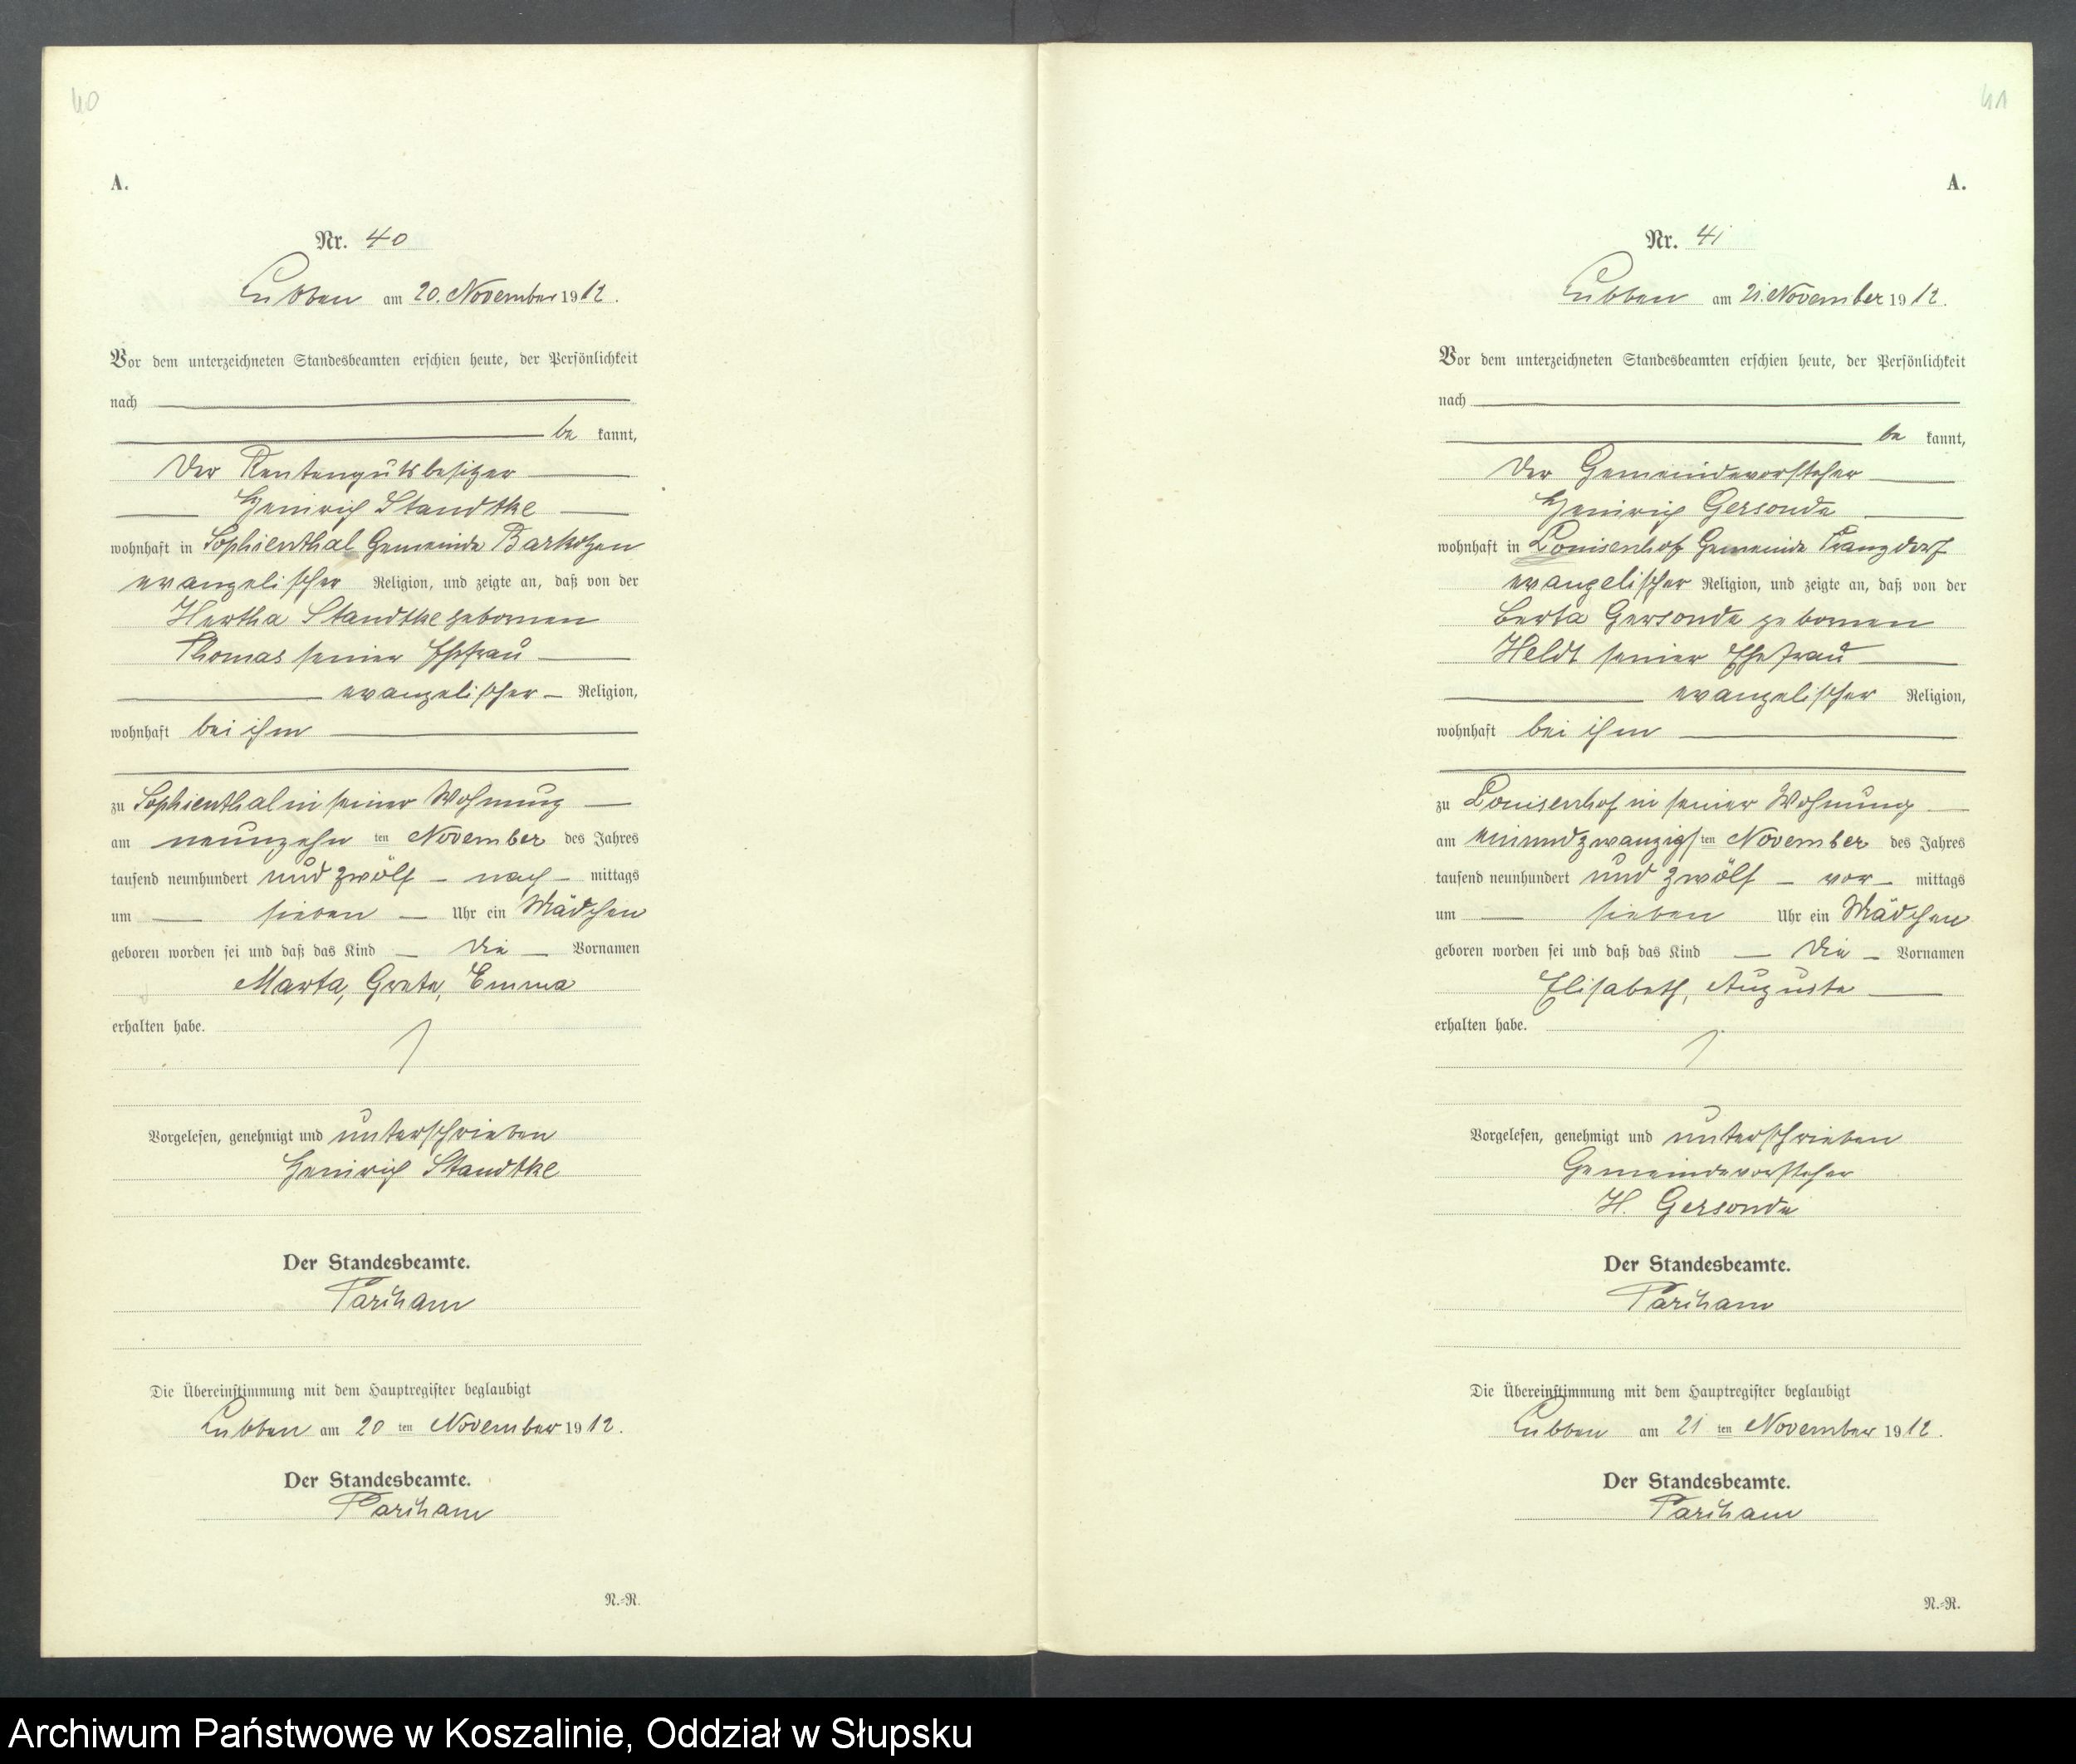 40
A.
Nr. 40
Lubben am 20. November 1912.
Vor dem unterzeichneten Standesbeamten erschien heute, der Persönlichkeit
nach
be kannt,
Der Rentengutsbesitzer
Heinrich Standtke
wohnhaft in Sophienthal Gemeinde Barkotzen
evangelischer Religion, und zeigte an, daß von der
Hertha Standtke geborenen
Thomas seiner Ehefrau
evangelischer Religion,
wohnhaft bei ihm
zu Sophienthal in seiner Wohnung
am neunzehn ten November des Jahres
tausend neunhundert und zwölf nach mittags
um sieben Uhr ein Mädchen
geboren worden sei und daß das Kind die Vornamen
Marta, Grete, Emma
erhalten habe.
Vorgelesen, genehmigt und unterschrieben
Heinrich Standtke
Der Standesbeamte.
Die Übereinstimmung mit dem Hauptregister beglaubigt
Lubben am 20 ten November 1912.
Der Standesbeamte.
N.-R.
41
A.
Nr. 41
Lubben am 21. November 1912.
Vor dem unterzeichneten Standesbeamten erschien heute, der Persönlichkeit
nach
be kannt,
Der Gemeindevorsteher
Heinrich Gersonde
wohnhaft in Louisenhof Gemeinde Franzdorf
evangelischer Religion, und zeigte an, daß von der
Berta Gersonde geborenen
Heldt seiner Ehefrau
evangelischer Religion,
wohnhaft bei ihm
zu Louisenhof in seiner Wohnung
am einundzwanzigs ten November des Jahres
tausend neunhundert und zwölf vor mittags
um sieben Uhr ein Mädchen
geboren worden sei und daß das Kind die Vornamen
Elisabeth, Auguste
erhalten habe.
Vorgelesen, genehmigt und unterschrieben
Gemeindevorsteher
H. Gersonde
Der Standesbeamte.
Die Übereinstimmung mit dem Hauptregister beglaubigt
Lubben am 21 ten November 1912.
Der Standesbeamte.
N.-R.
Archiwum Państwowe w Koszalinie, Oddział w Słupsku